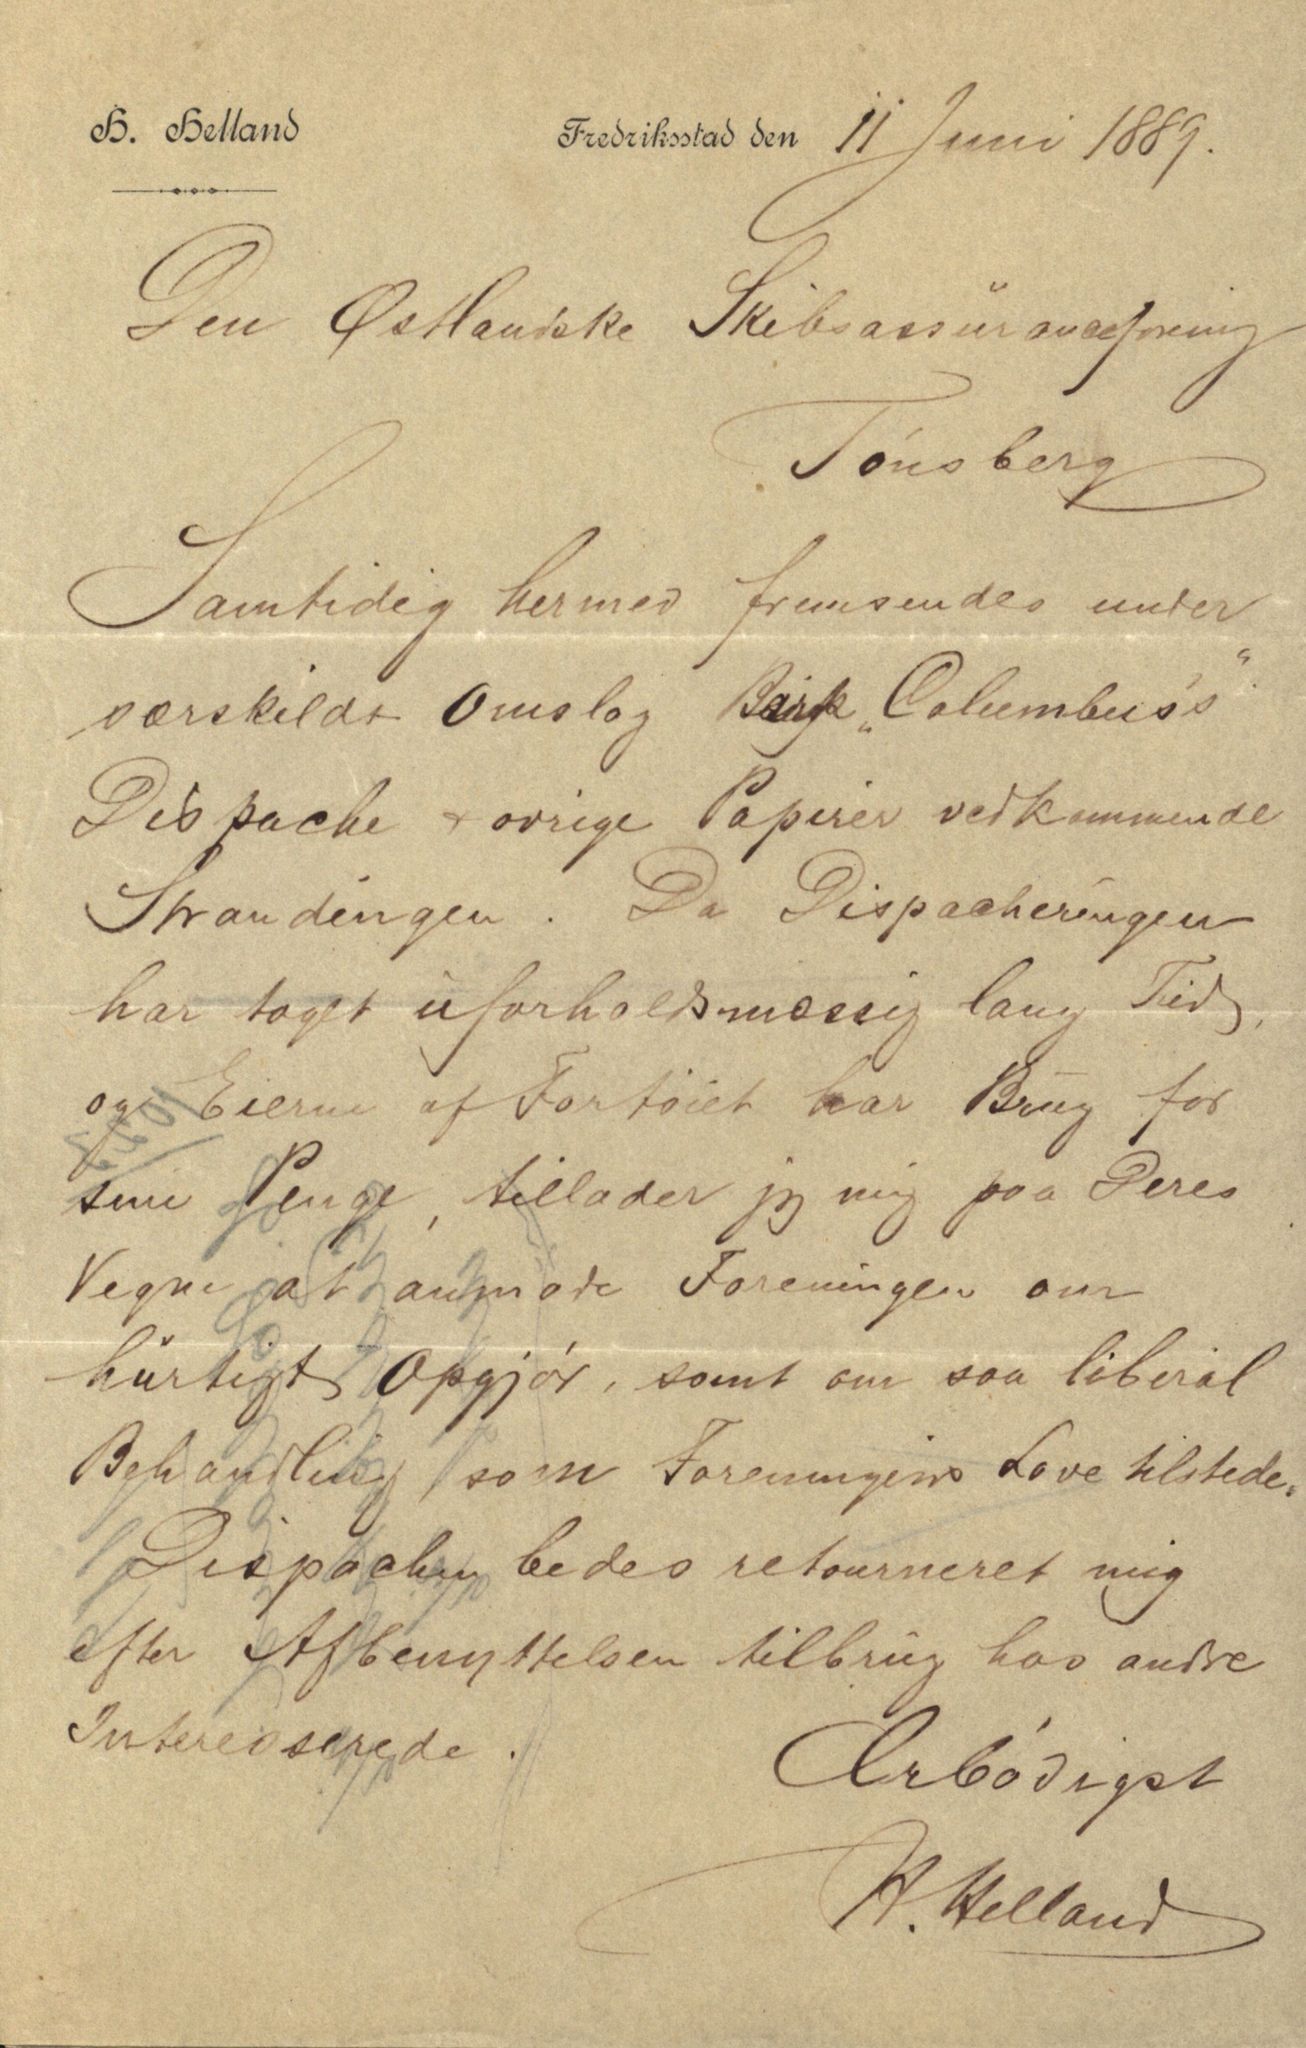 H. Helland Fredriksstad den 11 Juni 1889.
Den Østlandske Skibsassüranceforening
Tönsberg
Samtidig hermed fremsendes under
særskildt Omslag Bark „Columbus's“
Dispache + övrige Papirer vedkommende
Strandingen. Da Dispacheringen
har taget uforholdsmæssig lang Tid,
og Eierne af Fartöiet har Brug for
sine Penge, tillader jeg mig paa Deres
Vegne at anmode Foreningen om
hürtigt Opgjör, samt om saa liberal
Behandling, som Foreningens Love tilstede.
Dispachen bedes retourneret mig
efter Afbenyttelsen tilbrüg hos andre
Interesserede.
Ærbödigst
H. Helland